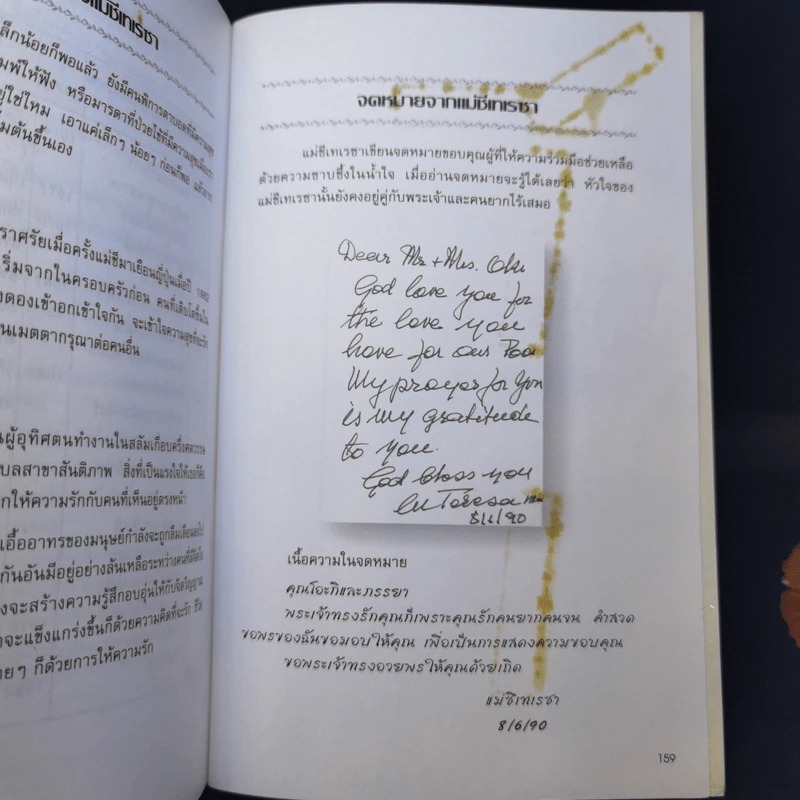 แม่ชีเทเรซา
เล็กน้อยก็พอแล้ว ยังมีคนพิการตาบอดที่มีความสุข
มพ์ให้ฟัง หรือมารดาที่ป่วยใช้ที่มีความสุขเมื่อเรา
ยู่ใช่ไหม เอาแค่เล็กๆ น้อยๆ ก่อนก็พอ
มต้นขึ้นเอง
ราศรัยเมื่อครั้งแม่ชีมาเยือนญี่ปุ่นเมื่อปี
ริ่มจากในครอบครัวก่อน คนที่เติบโตขึ้นใน
งดองเข้าอกเข้าใจกัน จะเข้าใจความสุขที่จะรัก
นเมตตากรุณาต่อคนอื่น
นผู้อุทิศตนทำงานในสลัมเกือบครึ่งศตวรรษ
บลสาขาสันติภาพ สิ่งที่เป็นแรงใจให้เธอก็คือ
กให้ความรักกับคนที่เห็นอยู่ตรงหน้า
เอื้ออาทรของมนุษย์กำลังจะถูกลืมเลือนลงไป
กันอันมีอยู่อย่างล้นเหลือระหว่างคนที่มีจิตใจ
งจะสร้างความรู้สึกอบอุ่นให้กับจิตวิญญาณ
าจะแข็งแกร่งขึ้นก็ด้วยความคิดที่จะรัก ชีวิต
ายๆ ก็ด้วยการให้ความรัก
จดหมายจากแม่ชีเทเรซา
แม่ชีเทเรซาเขียนจดหมายขอบคุณผู้ที่ให้ความร่วมมือช่วยเหลือ
ด้วยความซาบซึ้งในน้ำใจ เมื่ออ่านจดหมายจะรู้ได้เลยว่า หัวใจของ
แม่ชีเทเรซานั้นยังคงอยู่คู่กับพระเจ้าและคนยากไร้เสมอ
Dear Mr. + Mrs. Oki
God love you for
the love you
have for our Poor
My prayer for You
is my gratitude
to you.
God bless you
M Teresa mc
8/6/90
เนื้อความในจดหมาย
คุณโอะกิและภรรยา
พระเจ้าทรงรักคุณก็เพราะคุณรักคนยากคนจน คำสวด
ขอพรของฉันขอมอบให้คุณ เพื่อเป็นการแสดงความขอบคุณ
ขอพระเจ้าทรงอวยพรให้คุณด้วยเถิด
แม่ชีเทเรซา
8/6/90
159